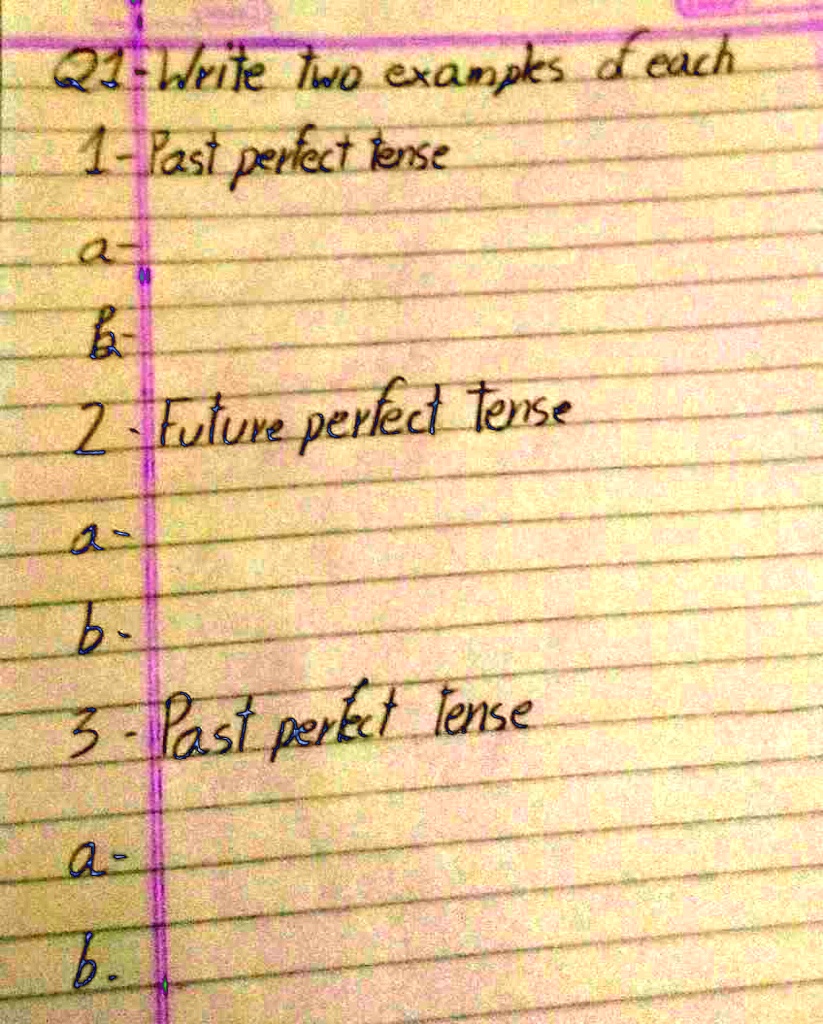 Q1-Write two examples of each
1-Past perfect tense
a-
b-
2-Future perfect tense
a-
b-
3-Past perfect tense
a-
b.